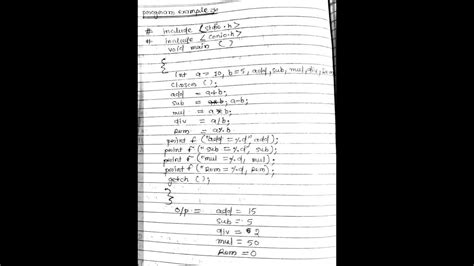 program example :-
# include <stdio.h>
# include <conio.h>
void main ( )
{
{
int a = 10, b = 5, add, sub, mul, div,
clrscr ( );
add = a+b;
sub = a-b;
mul = a*b;
div = a/b;
Rom = a%b
print f ("add = %d" add);
print f ("sub = %d, sub);
print f ("mul = %d, mul);
print f ("Rom = %d, Rom);
getch ( );
}
}
O/p = add = 15
sub = 5
div = 2
mul = 50
Rom = 0